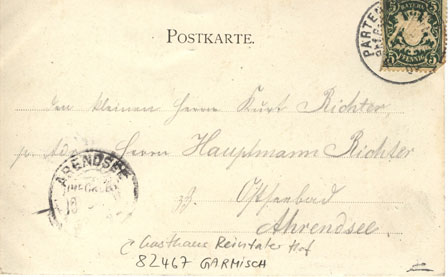 POSTKARTE.
BAYERN
5 5
PFENNIG
PARTEN
den kleinen Herrn Kurt Richter,
Herrn Hauptmann Richter
ARENDSEE
Ostseebad
Ahrendsee.
Gasthaus Reintaler Hof
82467 GARMISCH